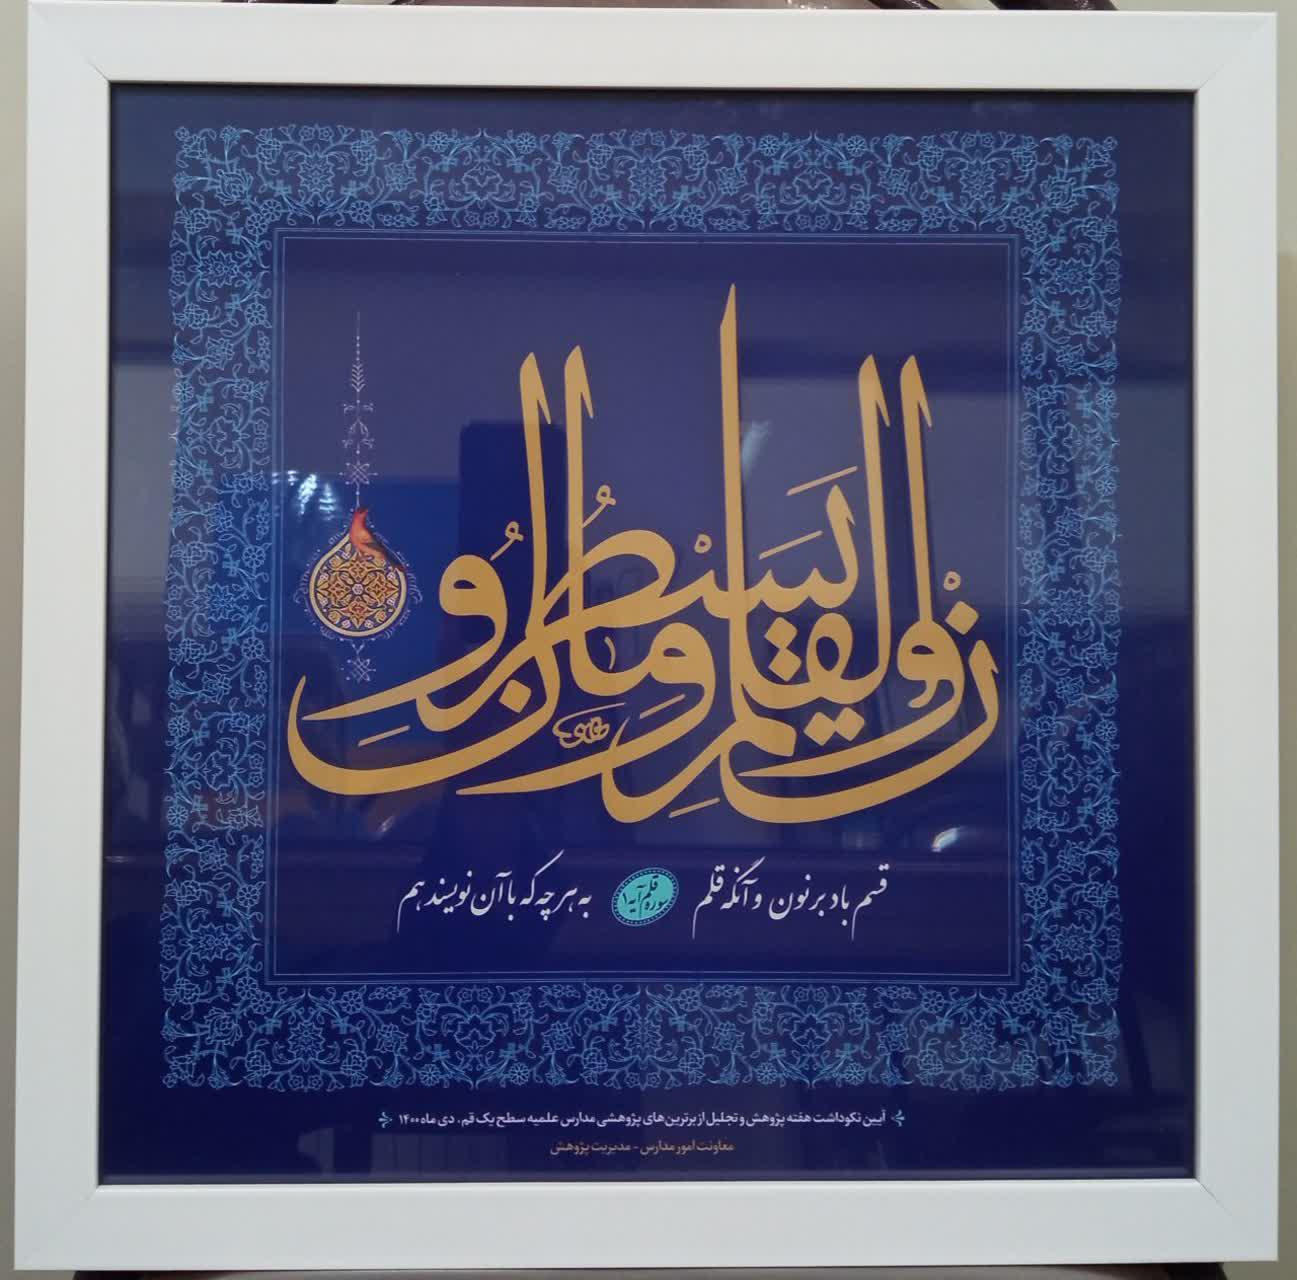 ن والقلم وما يسطرون
قسم باد بر نون و آنگه قلم
سوره قلم آیه ۱
به هر چه که با آن نویسند هم
آیین نکوداشت هفته پژوهش و تجلیل از برترین‌های پژوهشی مدارس علمیه سطح یک قم، دی ماه ۱۴۰۰
معاونت امور مدارس - مدیریت پژوهش